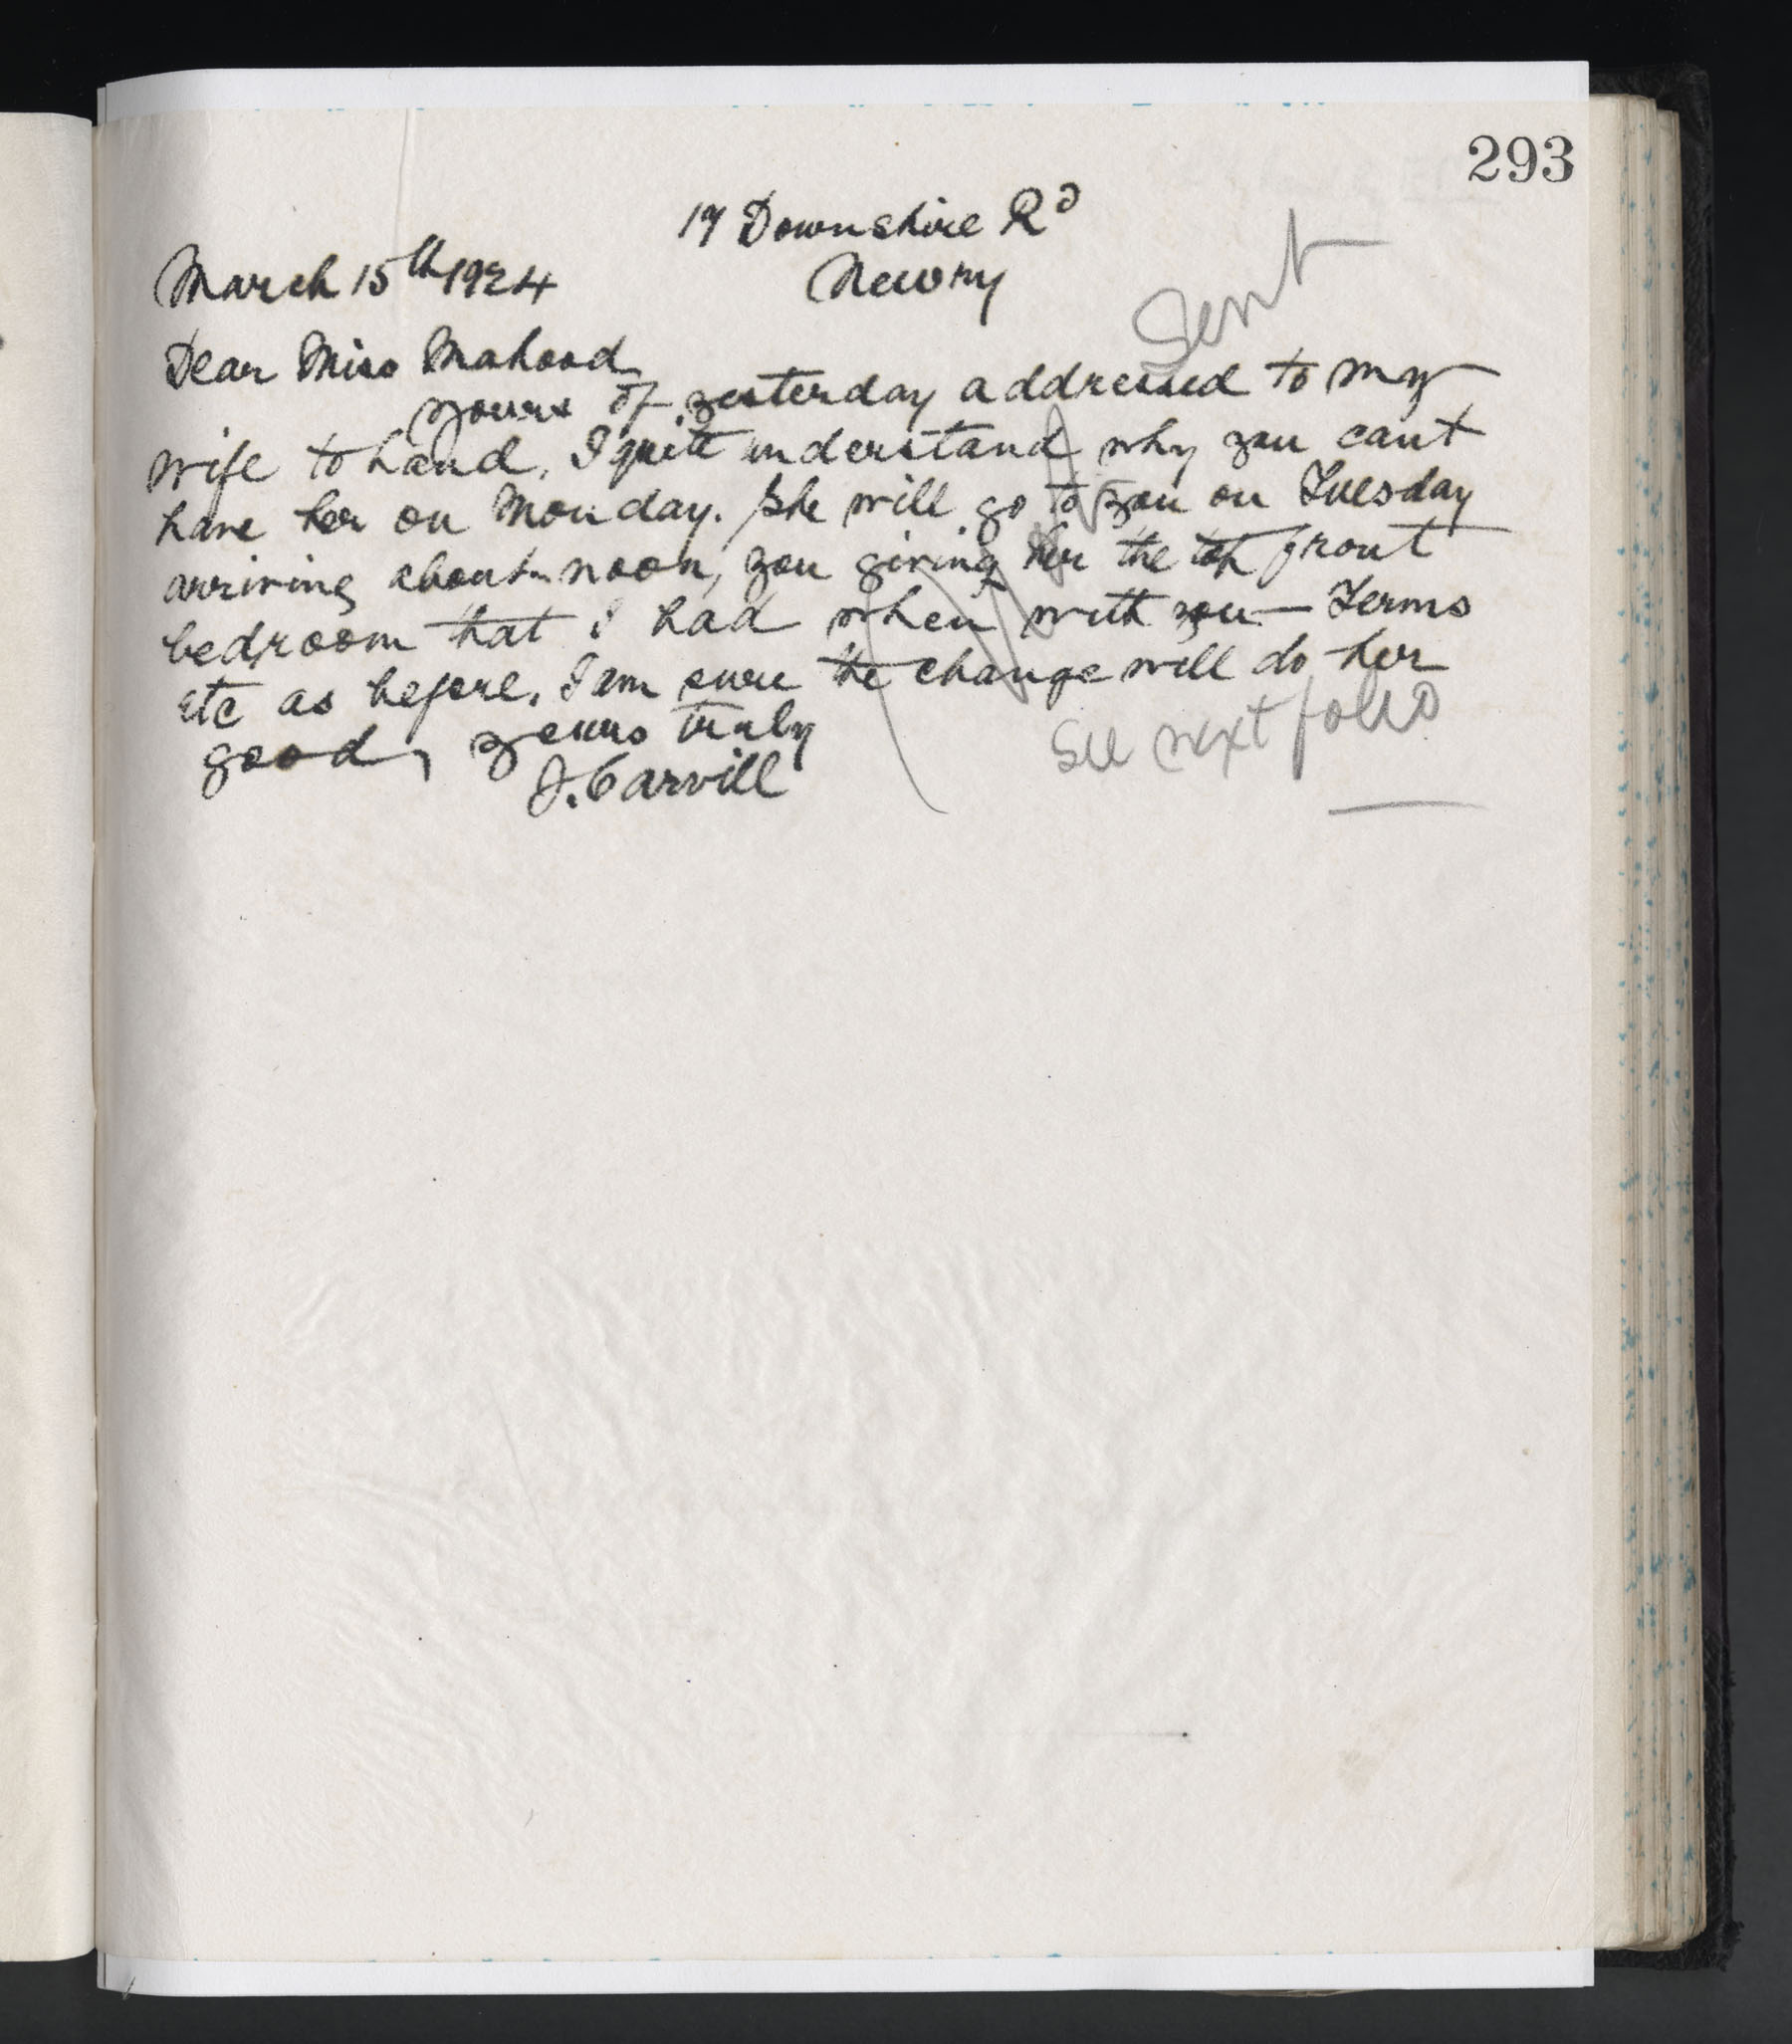 293
17 Downshire Rd
Newry
March 15th 1924
Sent
Dear Miss Mahood
yours of yesterday addressed to my
wife to hand, I quite understand why you cant
have her on Monday. She will go to you on Tuesday
arriving about noon, you giving her the top front
bedroom that I had when with you — Terms
etc as before. I am sure the change will do her
good, yours truly
J. Carvill
See next folio